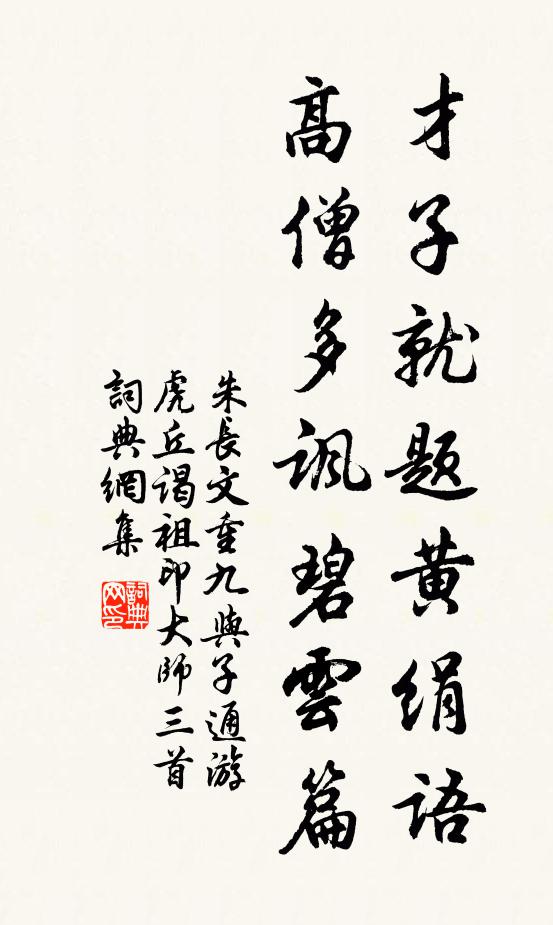 才子就题黄绢语
高僧多讽碧雲篇
朱長文重九與子通游
虎丘谒祖印大师三首
詞典網集
詞典网印